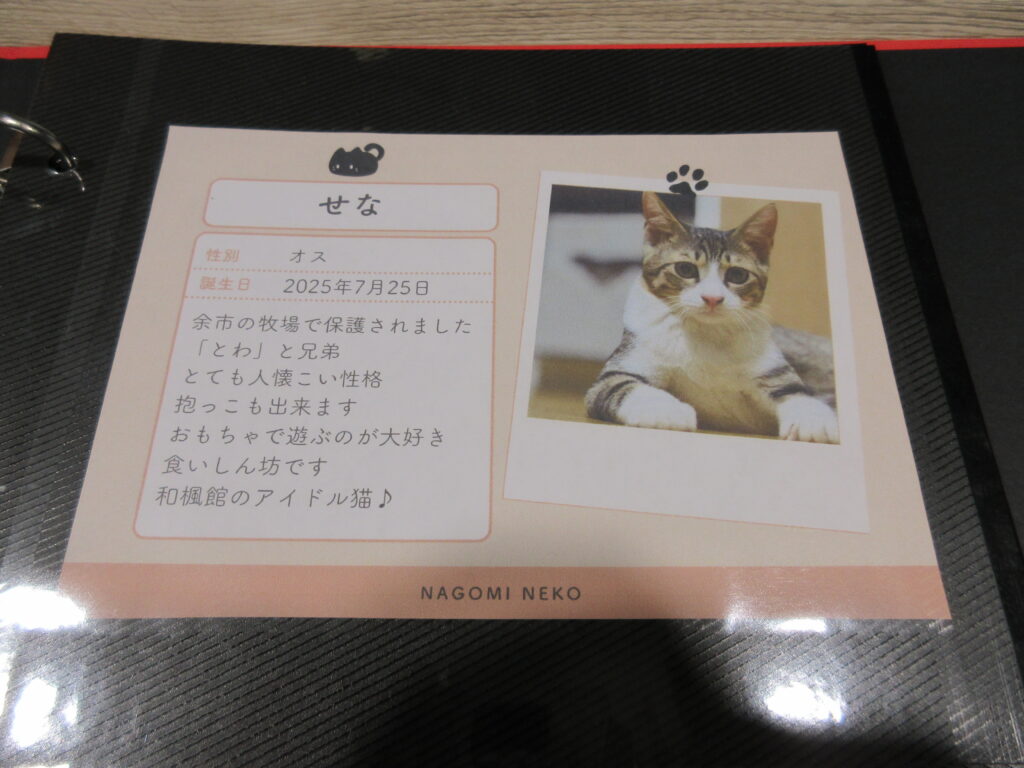 せな
性別 オス
誕生日 2025年7月25日
余市の牧場で保護されました
「とわ」と兄弟
とても人懐こい性格
抱っこも出来ます
おもちゃで遊ぶのが大好き
食いしん坊です
和楓館のアイドル猫♪
NAGOMI NEKO